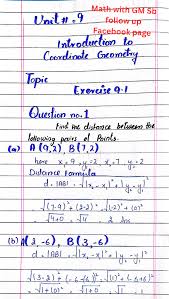 Math with GM Sb
follow up
Facebook page
Unit #. 9
Introduction to
Coordinate Geometry
Topic
Exercise 9.1
Question no. 1
Find the distance between the
following pairs of Points.
(a) A(9,2), B(7,2)
here x₁ = 9, y₁ = 2, x₂ = 7, y₂ = 2
Distance Formula
d = |AB| = √|x₂-x₁|²+|y₂-y₁|²
= √(7-9)²+(2-2)² = √(-2)²+(0)²
= √4+0 = √4 = 2 Ans
(b) A(3,-6), B(3,-6)
d = |AB| = √|x₂-x₁|²+|y₂-y₁|²